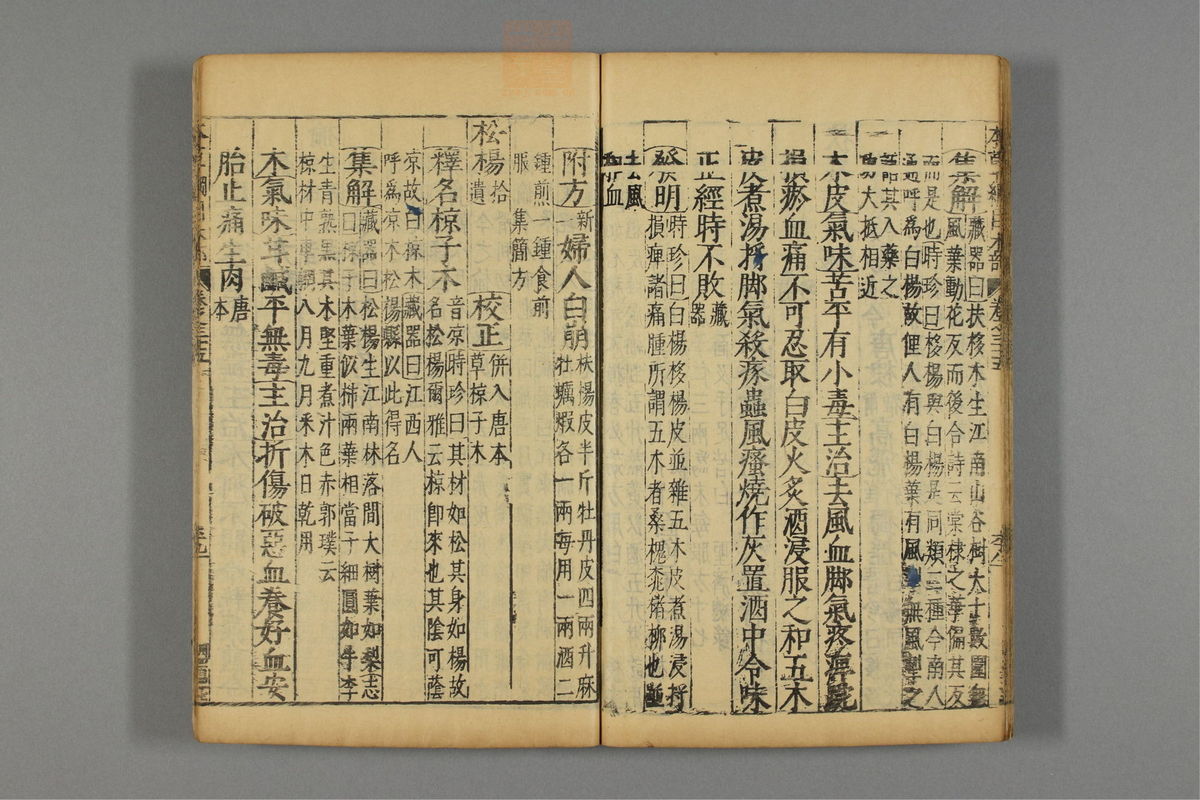 集解藏器曰扶栘木生江南山谷樹大十數圍無
風葉動花反而後合詩云棠棣之華偏其反
而是也時珍曰栘楊與白楊是同類二種今南人
通呼爲白楊故俚人有白楊葉有風掣無風掣之
語其入藥之
功大抵相近
木皮氣味苦平有小毒主治去風血脚氣疼痹踠
損瘀血痛不可忍取白皮火炙酒浸服之和五木
皮煮湯捋脚氣殺瘃蟲風瘙燒作灰置酒中令味
正經時不敗藏器
發明時珍曰白楊栘楊皮並雜五木皮煮湯浸捋
損痹諸痛腫所謂五木者桑槐桃楮柳也並
去風
和血
附方新一婦人白崩扶楊皮半斤牡丹皮四兩升麻
牡蠣煆各一兩每用一兩酒二
鍾煎一鍾食前
服 集簡方
松楊拾遺 校正併入唐本草椋子木
釋名椋子木音凉時珍曰其材如松其身如楊故
名松楊爾雅云椋即來也其陰可蔭
凉故曰椋木藏器曰江西人
呼爲凉木松楊縣以此得名
集解藏器曰松楊生江南林落間大樹葉如梨志
曰椋子木葉似柿兩葉相當子細圓如牛李
生青熟黑其木堅重煮汁色赤郭璞云
椋材中車輞八月九月采木日乾用
木氣味甘鹹平無毒主治折傷破惡血養好血安
胎止痛生肉唐本